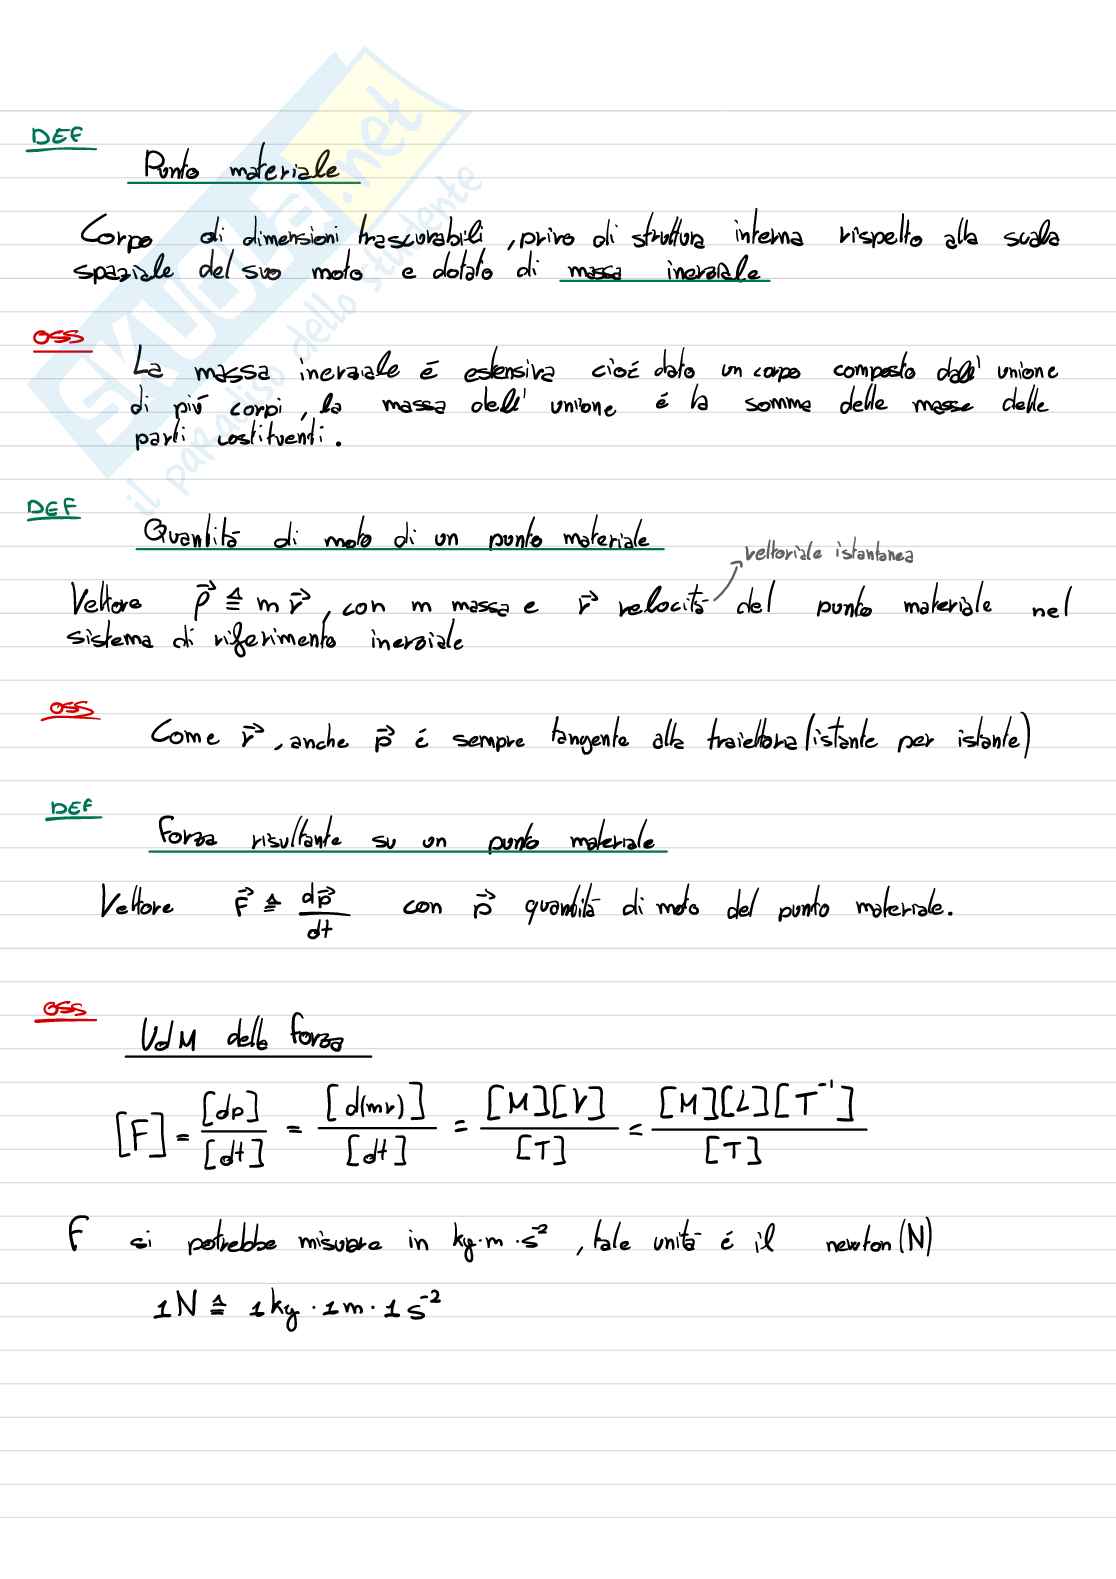 DEF
Punto materiale
Corpo di dimensioni trascurabili, privo di struttura interna rispetto alla scala
spaziale del suo moto e dotato di massa inerziale
OSS
La massa inerziale é estensiva cioé dato un corpo composto dall'unione
di piú corpi, la massa dell'unione é la somma delle masse delle
parti costituenti.
DEF
Quantitá di moto di un punto materiale
vettoriale istantanea
Vettore p⃗ ≜ m v⃗, con m massa e v⃗ velocitá del punto materiale nel
sistema di riferimento inerziale
OSS
Come v⃗, anche p⃗ é sempre tangente alla traiettoria (istante per istante)
DEF
Forza risultante su un punto materiale
Vettore F⃗ ≜ dp⃗/dt con p⃗ quantitá di moto del punto materiale.
OSS
UdM della forza
[F] = [dp]/[dt] = [d(mv)]/[dt] = [M][V]/[T] = [M][L][T⁻¹]/[T]
F si potrebbe misurare in kg·m·s⁻², tale unitá é il newton (N)
1N ≜ 1kg·1m·1s⁻²
SKUOLA.net
il paradiso dello studente